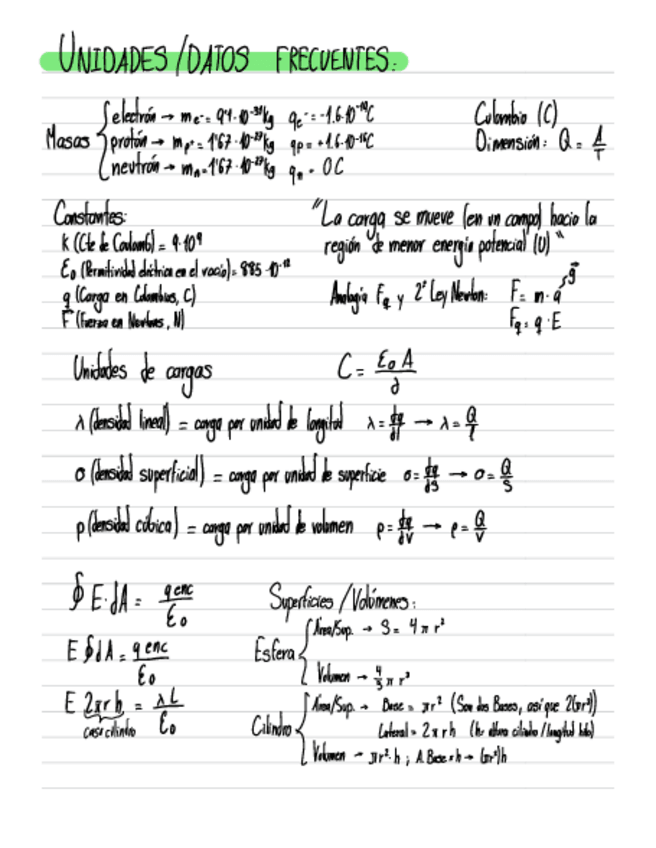 UNIDADES/DATOS FRECUENTES:
Masas { electrón → me⁻ = 9'1·10⁻³¹kg qe⁻ = -1.6·10⁻¹⁹C
protón → mp⁺ = 1'67·10⁻²⁷kg qp = +1.6·10⁻¹⁹C
neutrón → mn = 1'67·10⁻²⁷kg qn = 0C
Culombio (C)
Dimensión: Q = A/T
Constantes:
K (Cte de Coulomb) = 9·10⁹
ε₀ (Permitividad eléctrica en el vacío) = 8'85·10⁻¹²
q (Carga en Colombios, C)
F (Fuerza en Newtons, N)
"La carga se mueve (en un campo) hacia la
región de menor energía potencial (U)"
Analogía Fq y 2ª Ley Newton: F = m·a g⃗
Fq = q·E
Unidades de cargas
C = ε₀A/d
λ (densidad lineal) = carga por unidad de longitud λ = dq/dl → λ = Q/l
σ (densidad superficial) = carga por unidad de superficie σ = dq/dS → σ = Q/S
ρ (densidad cúbica) = carga por unidad de volumen ρ = dq/dV → ρ = Q/V
∮ E·dA = qenc/ε₀
E ∮dA = qenc/ε₀
E 2πrh = λL/ε₀
caso cilindro
Superficies/Volúmenes:
Esfera { Área/Sup. → S = 4πr²
Volumen → 4/3 πr³
Cilindro { Área/Sup. → Base = πr² (Son dos Bases, así que 2(πr²))
Lateral = 2πrh (h: altura cilindro/longitud hilo)
Volumen → πr²·h ; A.Base×h → (πr²)h